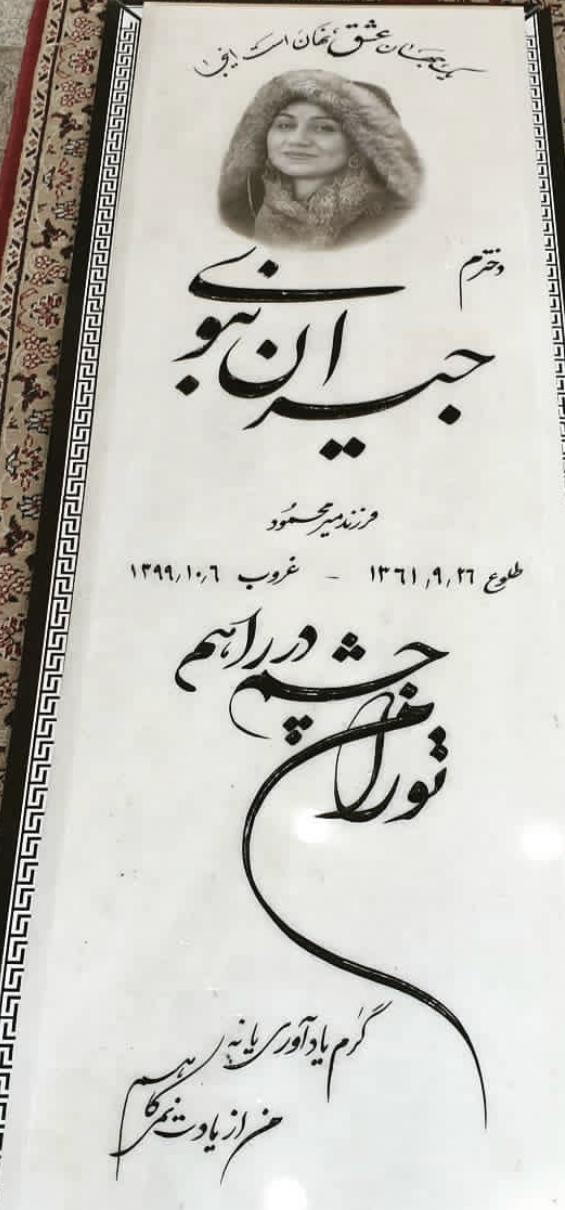 یک جهان عشق نهان است اینجا
دخترم
جیران نبوی
فرزند میرمحمود
طلوع ۱۳٦۱٫۹٫۲٦ - غروب ۱۳۹۹٫۱۰٫٦
تو را من چشم در راهم
گرم یادآوری یا نه
من از یادت نمی‌کاهم